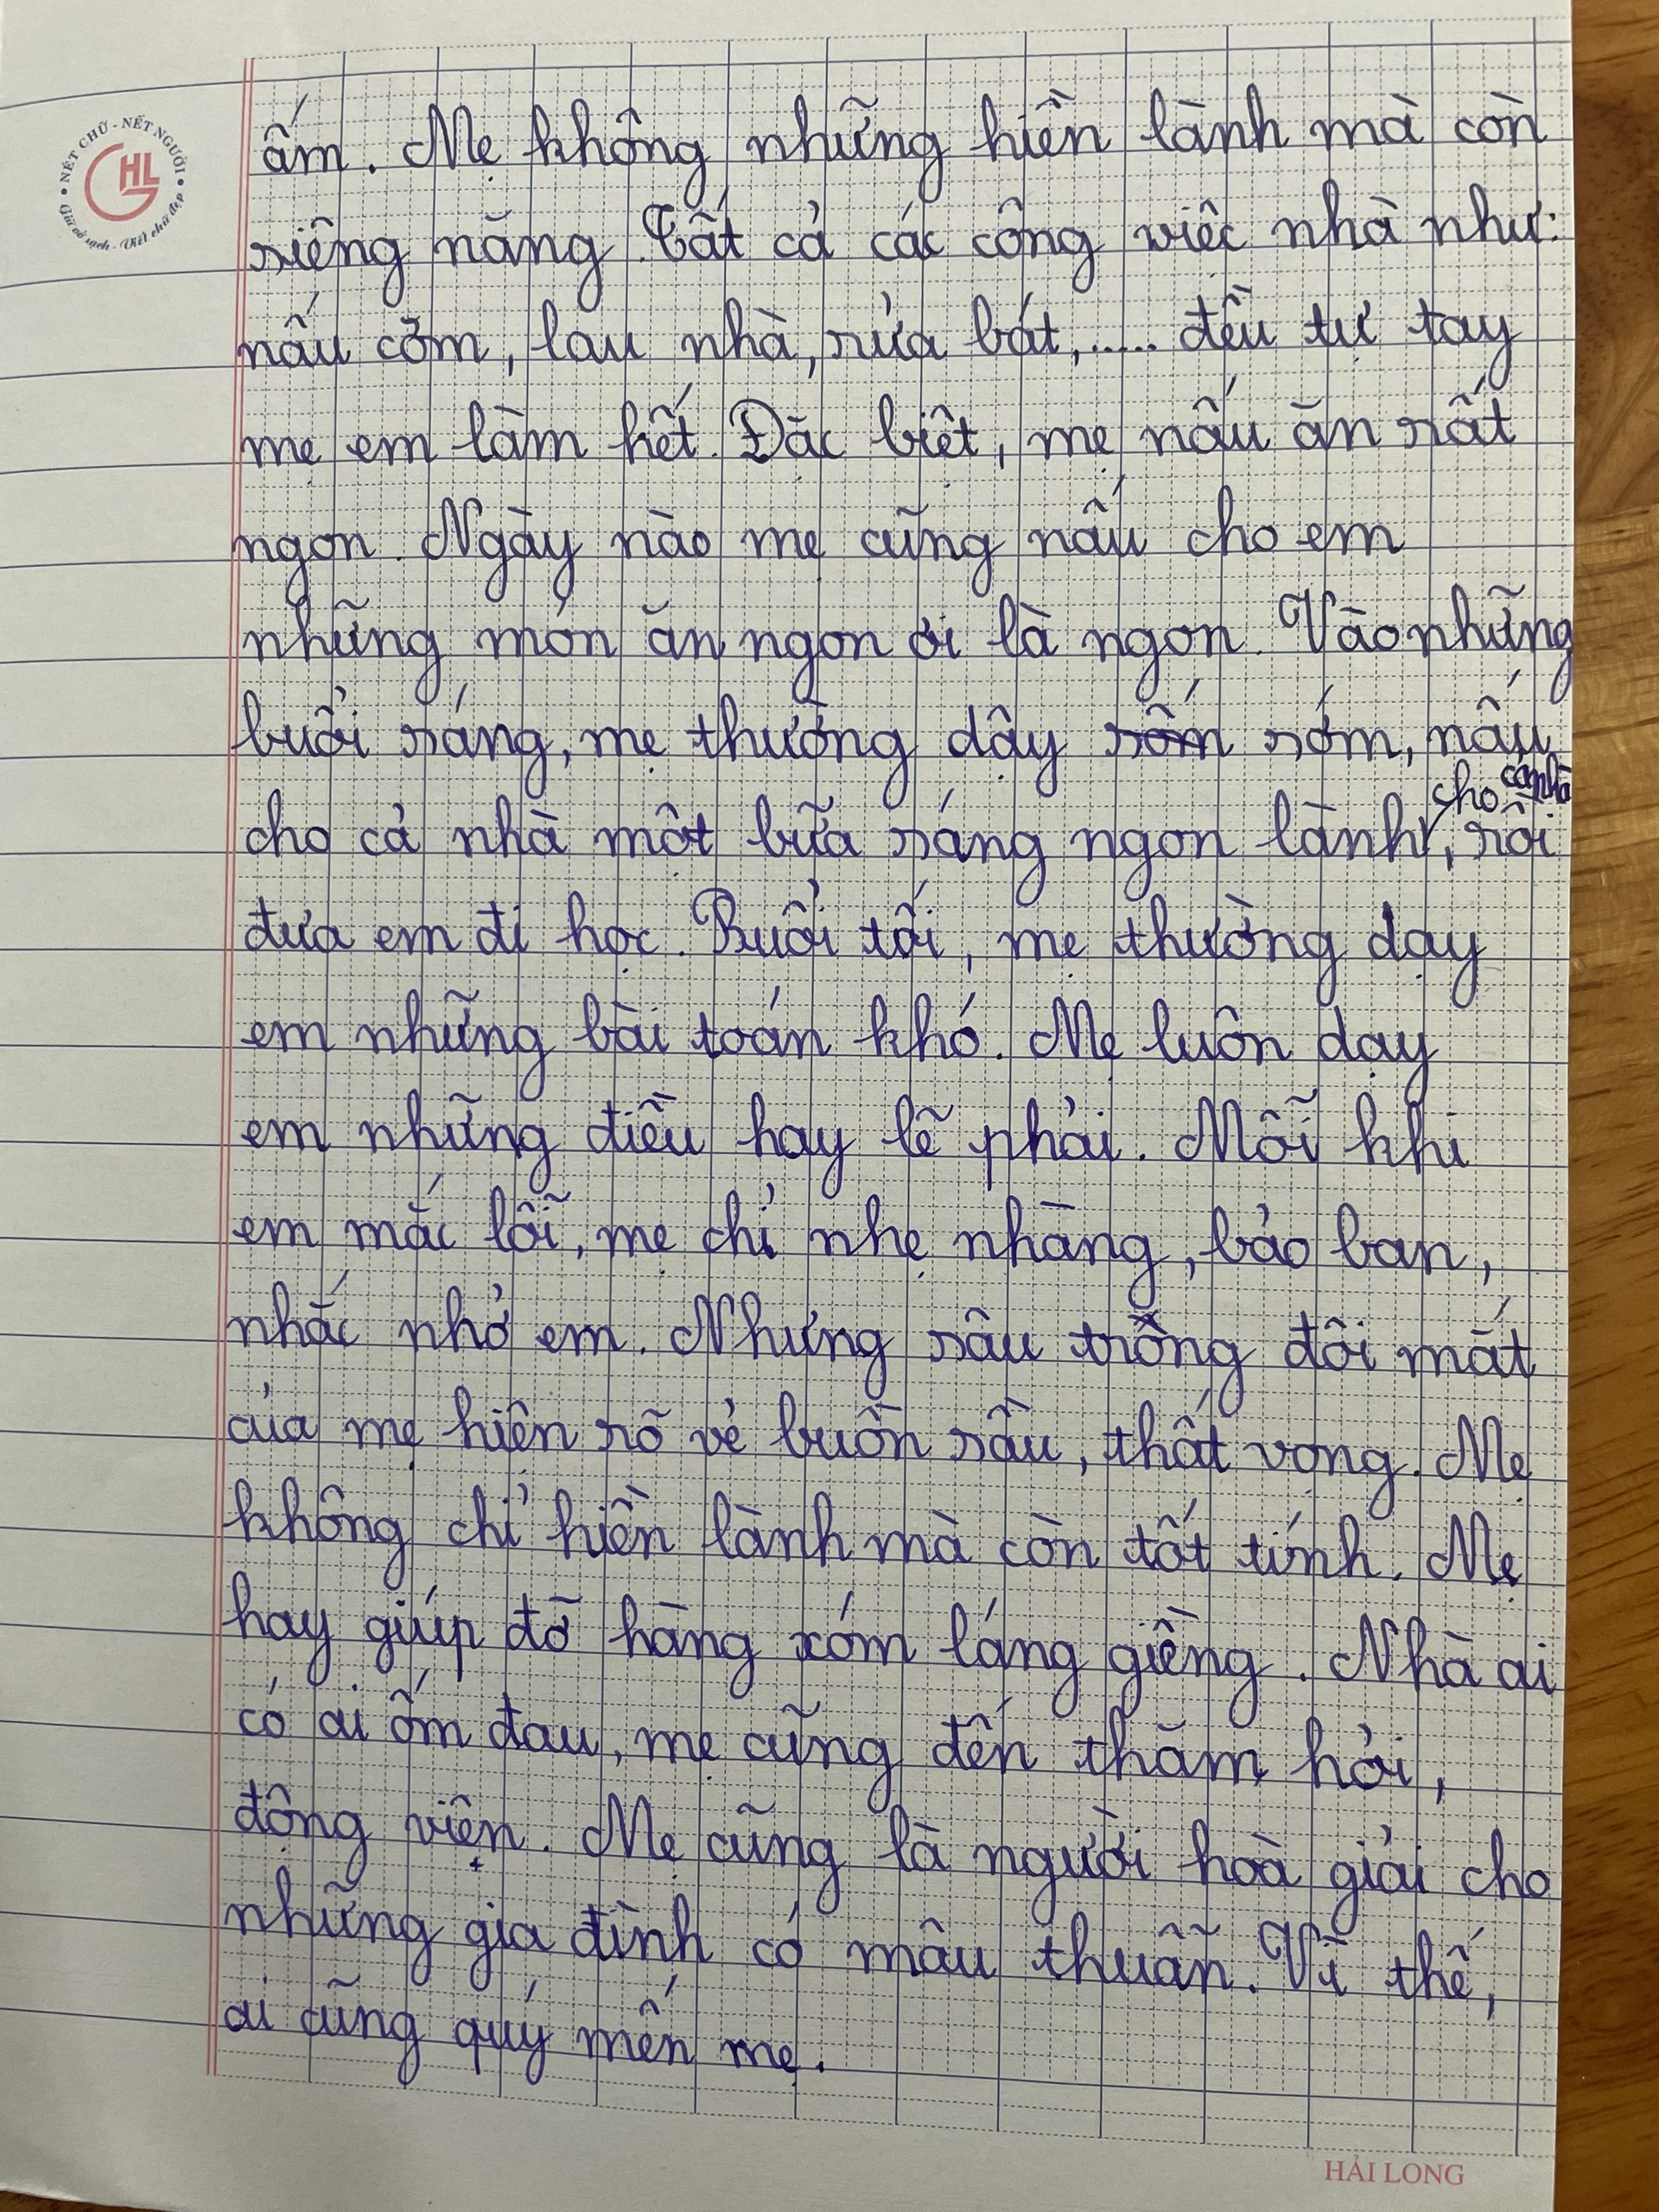 NẾT CHỮ - NẾT NGƯỜI
HL
Giữ vở sạch - Viết chữ đẹp
ấm. Mẹ không những hiền lành mà còn
siêng năng. Tất cả các công việc nhà như:
nấu cơm, lau nhà, rửa bát,..... đều tự tay
mẹ em làm hết. Đặc biệt, mẹ nấu ăn rất
ngon. Ngày nào mẹ cũng nấu cho em
những món ăn ngon ơi là ngon. Vào những
buổi sáng, mẹ thường dậy sớm, nấu
cho cả nhà
cho cả nhà một bữa sáng ngon lành, rồi
đưa em đi học. Buổi tối, mẹ thường dạy
em những bài toán khó. Mẹ luôn dạy
em những điều hay lẽ phải. Mỗi khi
em mắc lỗi, mẹ chỉ nhẹ nhàng, bảo ban,
nhắc nhở em. Nhưng sâu trong đôi mắt
của mẹ hiện rõ vẻ buồn sầu, thất vọng. Mẹ
không chỉ hiền lành mà còn tốt tính. Mẹ
hay giúp đỡ hàng xóm láng giềng. Nhà ai
có ai ốm đau, mẹ cũng đến thăm hỏi,
động viện. Mẹ cũng là người hoà giải cho
những gia đình có mâu thuẫn. Vì thế,
ai cũng quý mến mẹ.
HẢI LONG